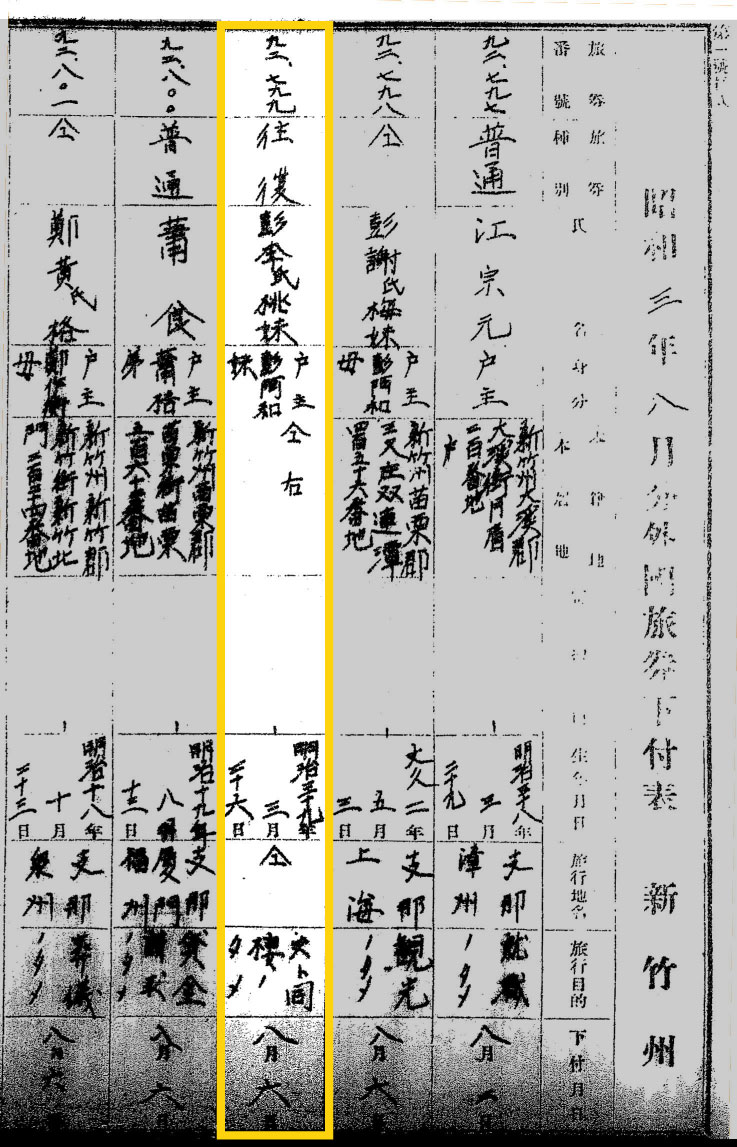 昭和三年八月分外国旅券下付表 新竹州
旅券番號
旅券種別
氏名
身分
本籍地
本居地
生年月日
旅行地名
旅行目的
下付月日
九二、七九七
普通
江宗元
戸主
新竹州大溪郡
大溪街
二百番地
戸
明治三十八年
三月
二十九日
支那
漳州
就職
ノタメ
八月
九二、七九八
仝
彭謝氏梅妹
戸主
彭阿和
母
新竹州苗栗郡
三叉庄双連潭
四百五十六番地
文久二年
五月
三日
支那
上海
観光
ノタメ
八月六日
九二、七九九
往復
彭李氏桃妹
戸主
彭阿和
妹
仝右
明治三十九年
三月
二十六日
仝
夫ト同
棲ノ
タメ
八月六日
九二、八〇〇
普通
蕭
戸主
蕭
弟
新竹州苗栗郡
苗栗街苗栗
番地
明治十九年
八月
十三日
支那
厦門
福州
貸金
請求
ノタメ
八月六日
九二、八〇一
仝
鄭黄氏格
戸主
母
新竹州新竹郡
新竹街新竹北
門二百十四番地
明治十八年
十月
二十三日
支那
泉州
葬儀
ノタメ
八月六日